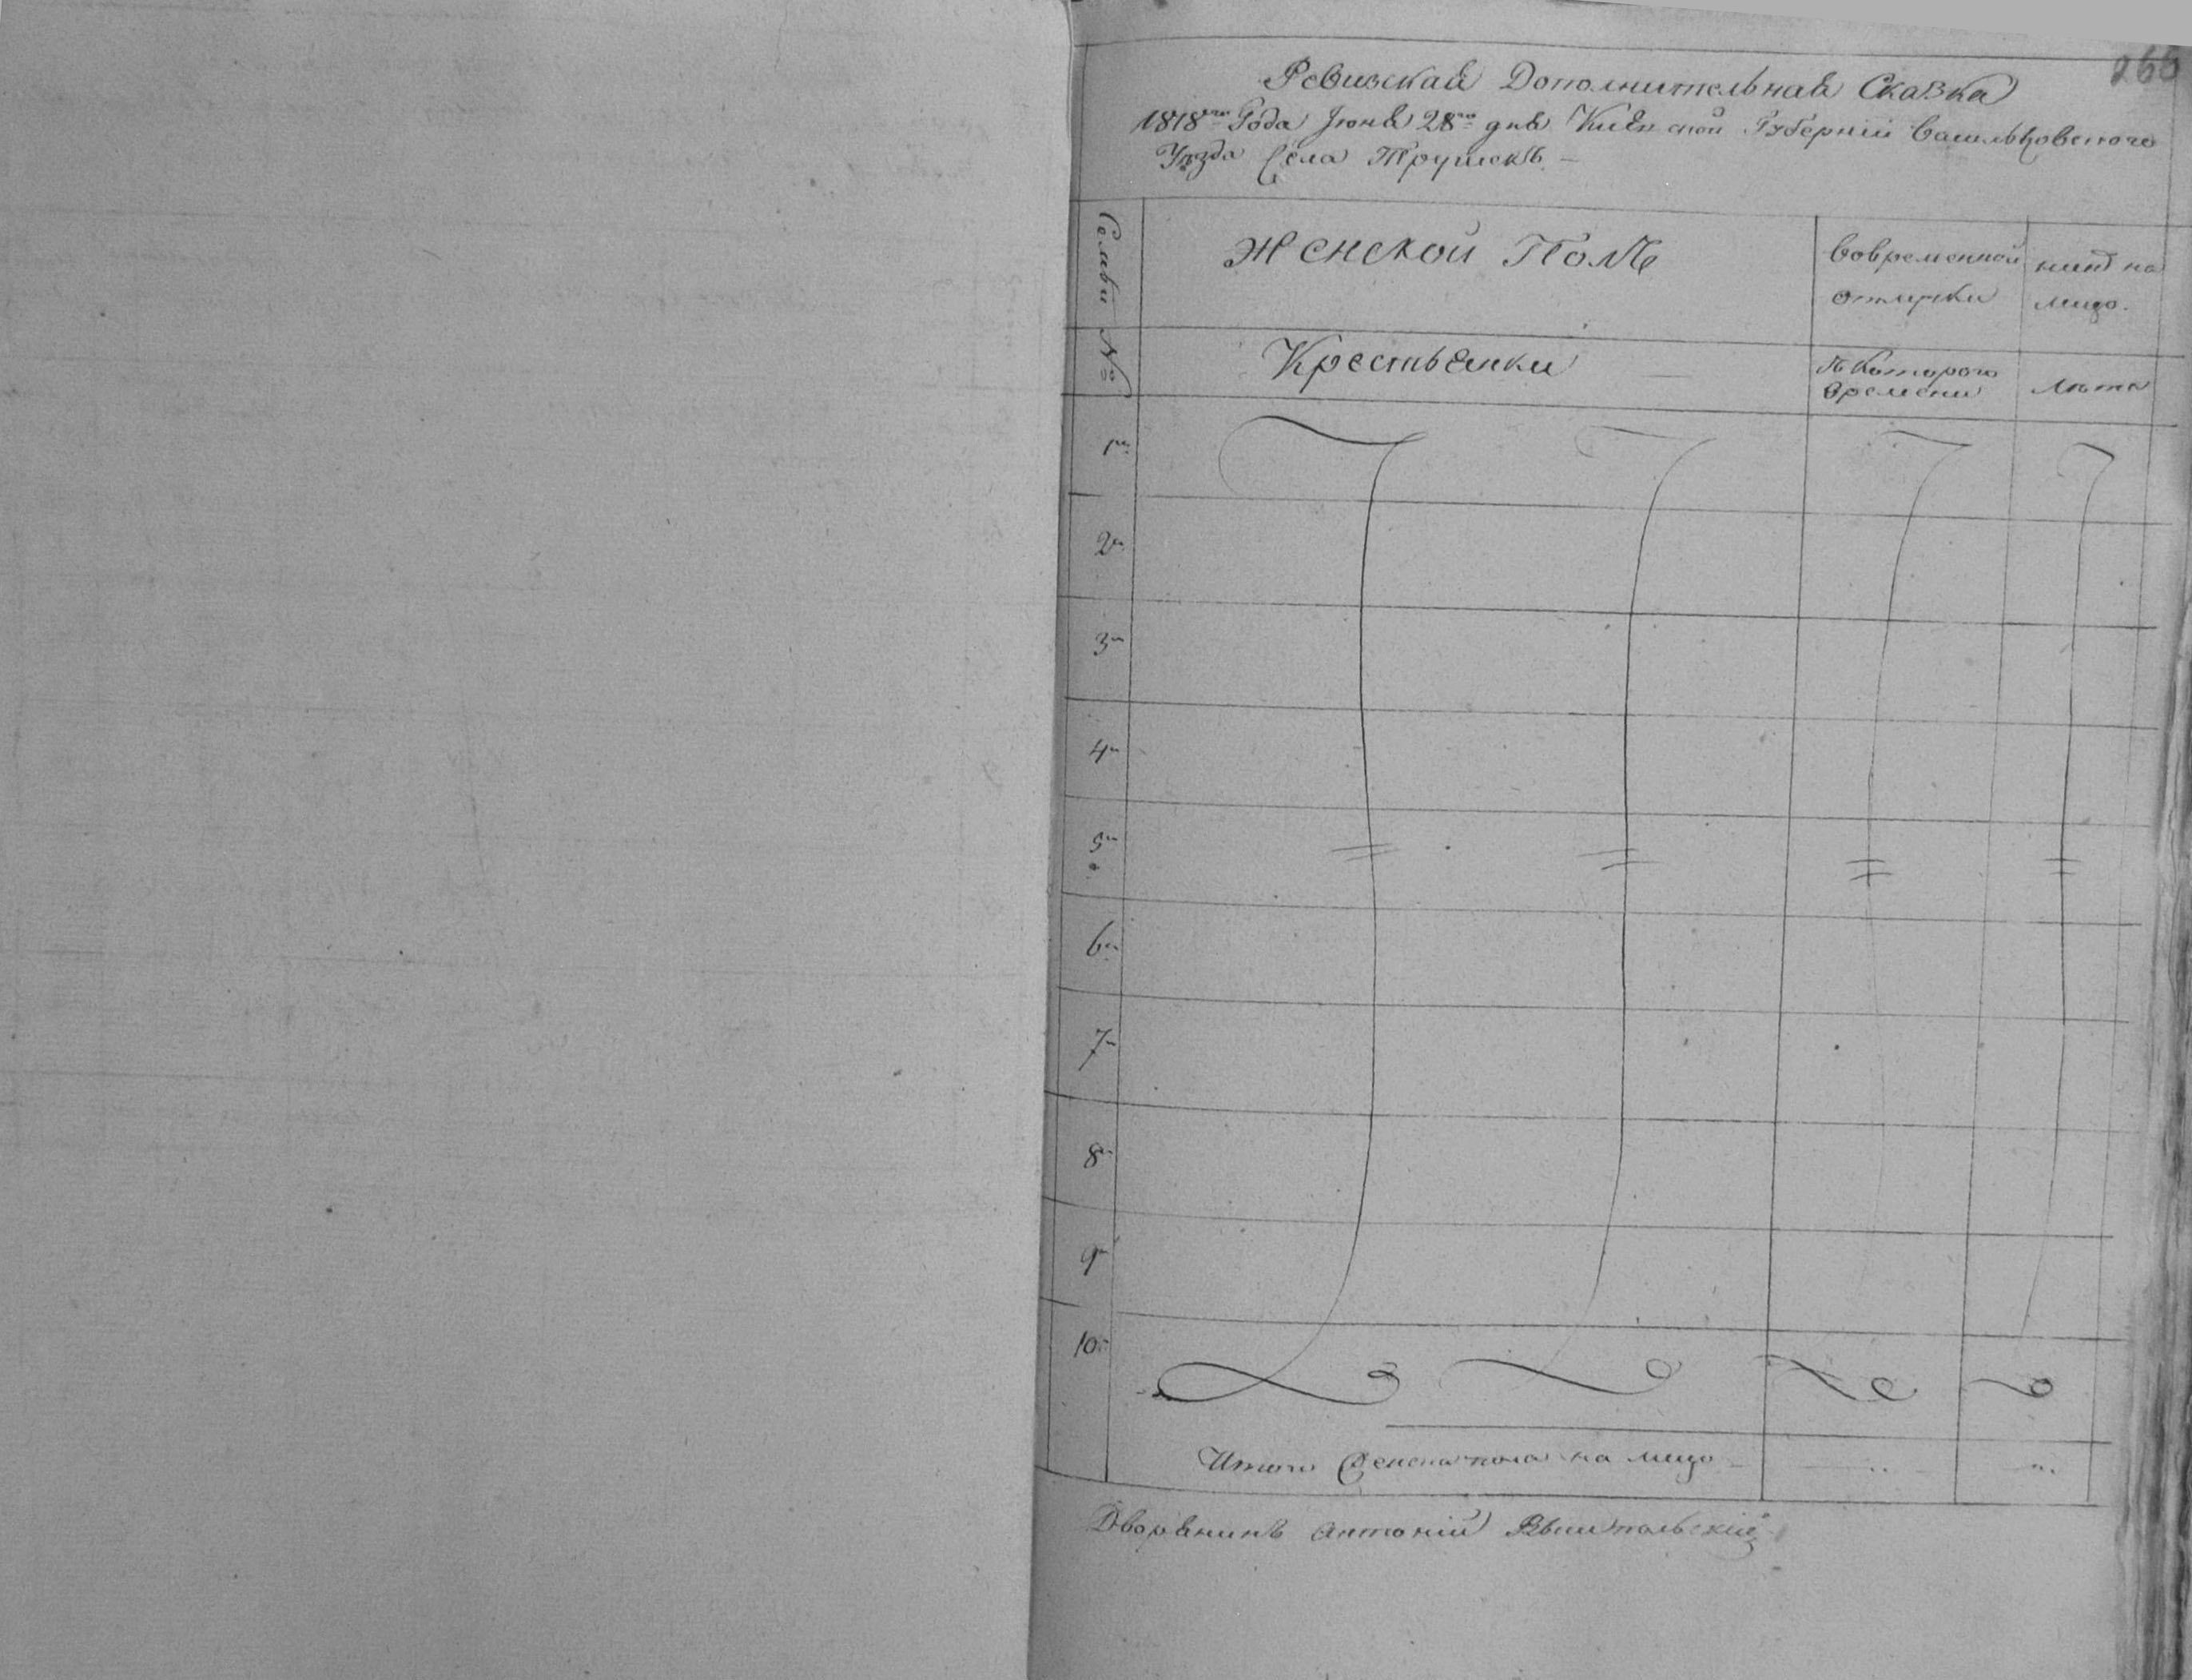 266
Ревизская Дополнительная Сказка
1818го Года Июня 28го дня Киевской Губернии Васильковского
Уезда Села Трушекъ
Семьи
Женской Полъ
Вовременной
отлучки
ныне на
лицо.
№
Крестьянки
съ Которого
времени
лета
1я
2я
3я
4я
5я
6я
7я
8я
9я
10я
Итого Женска пола на лицо
Дворянинъ Антоній